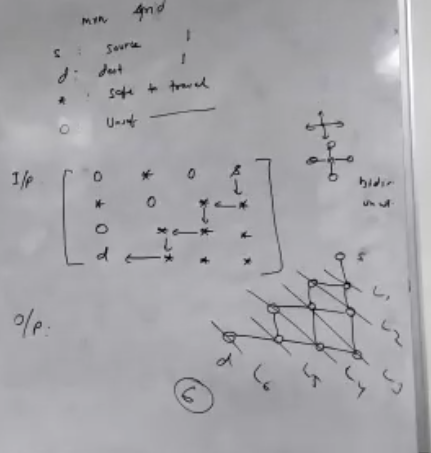 mxn Grid
s : source 1
d : dest 1
* : safe to travel
O unsaf
I/P. O * O s
* O * *
O * * *
d * * *
bidir
unwt.
s
L1
L2
d L6 L5 L4 L3
O/P.
6